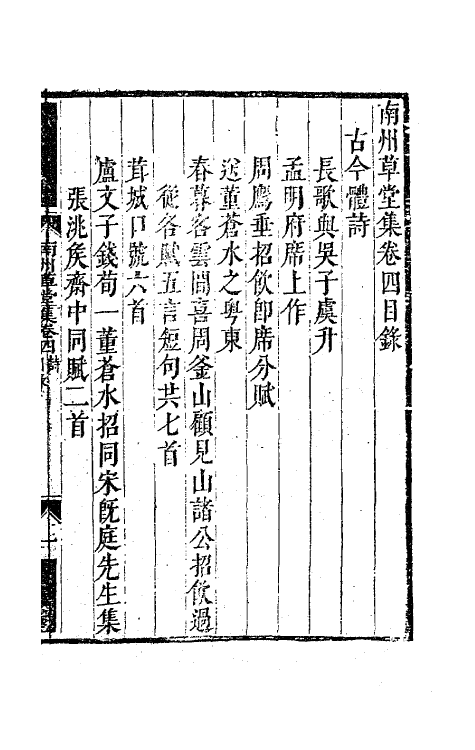 南州草堂集卷四目錄
古今體詩
長歌與吳子虞升
孟明府席上作
周鷹垂招飲即席分賦
送董蒼水之粵東
春暮客雲間喜周釜山顧見山諸公招飲過
從各賦五言短句共七首
茸城口號六首
盧文子錢荀一董蒼水招同宋旣庭先生集
張洮矦齋中同賦二首
南州草堂集卷四詩
一